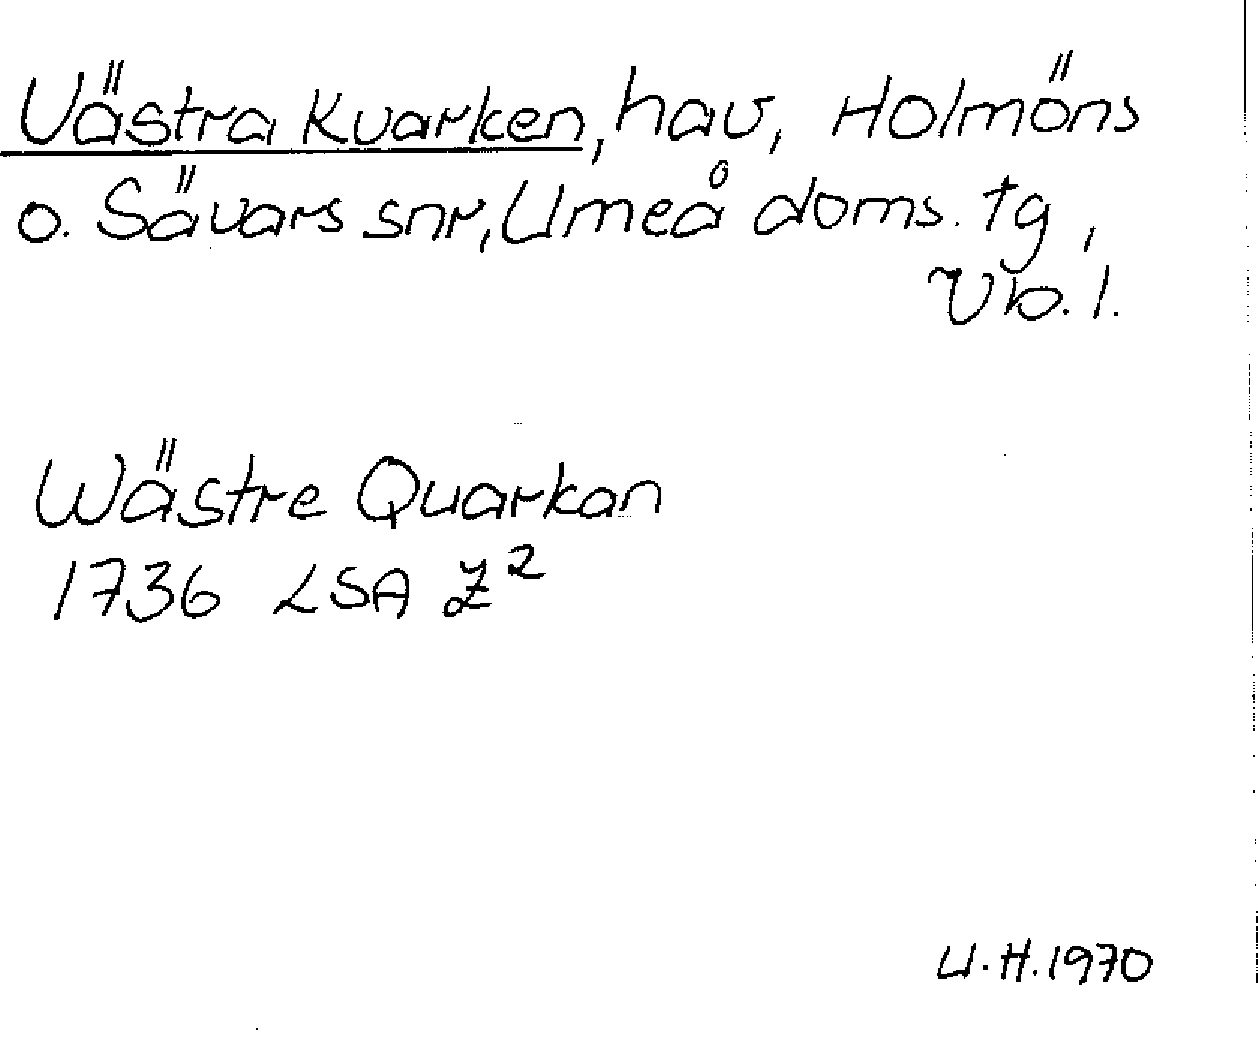 Västra Kvarken, hav, Holmöns
o. Sävars snr, Umeå doms. tg,
Vb. l.
Wästre Quarkan
1736 LSA Z²
U.H. 1970